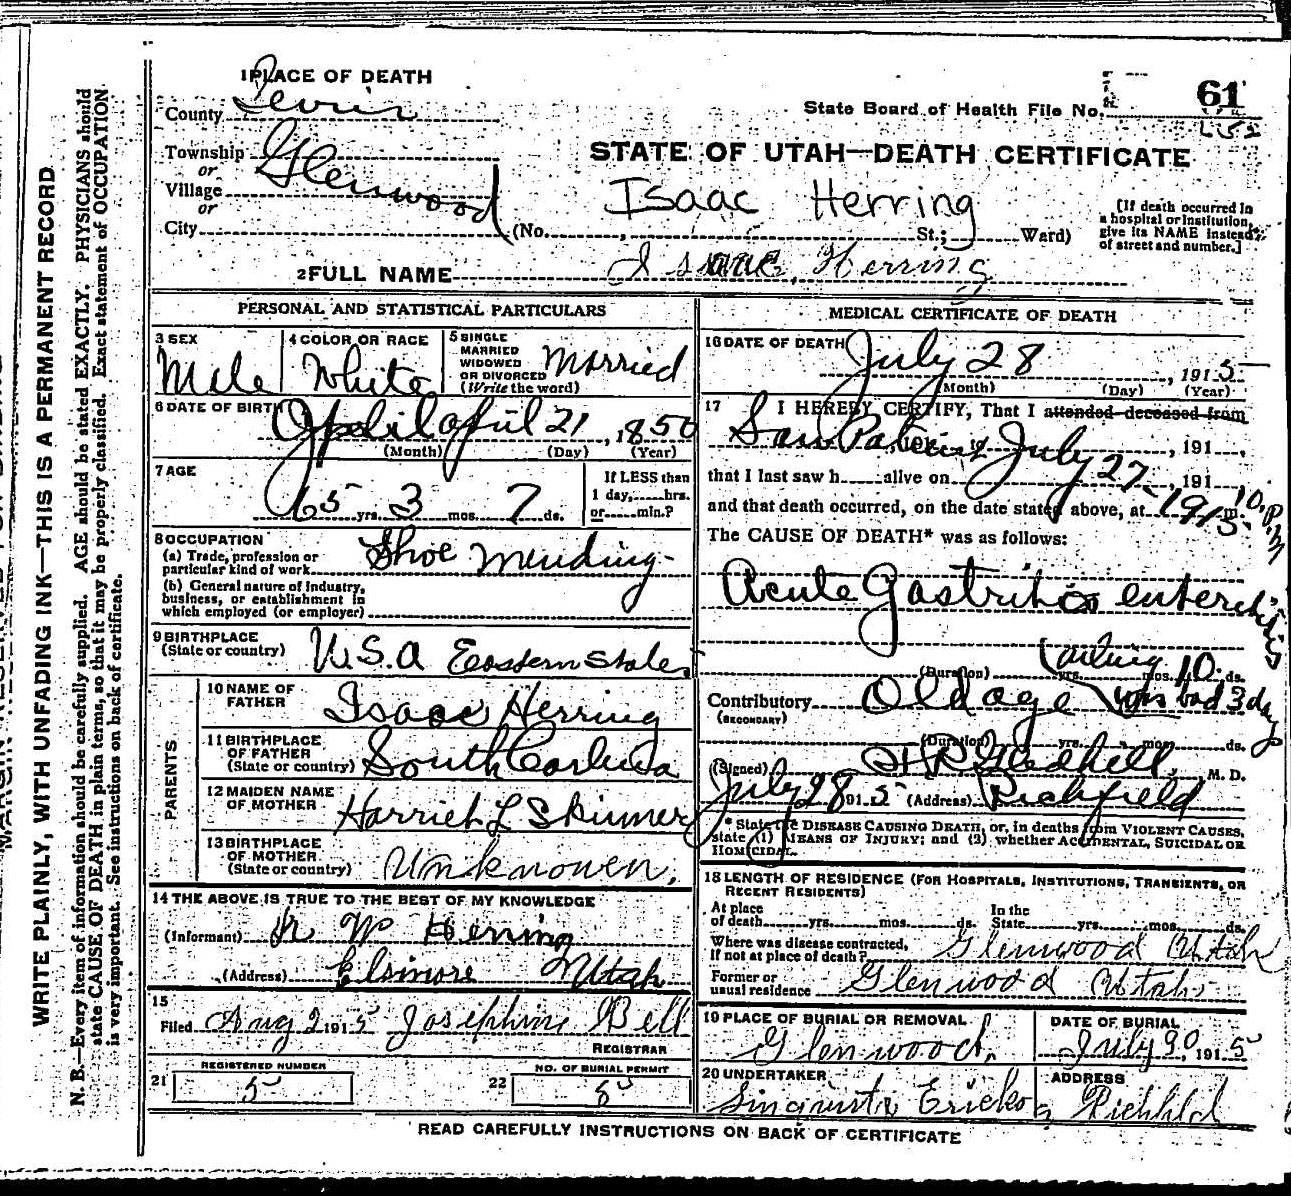 1 PLACE OF DEATH
County Sevier
State Board of Health File No. 61
Township Glenwood
or
Village
or
City
STATE OF UTAH—DEATH CERTIFICATE
Isaac Herring
(No. , St.; Ward)
[If death occurred in
a hospital or institution,
give its NAME instead
of street and number.]
2 FULL NAME Isaac Herring
PERSONAL AND STATISTICAL PARTICULARS
3 SEX
Male
4 COLOR OR RACE
White
5 SINGLE
MARRIED
WIDOWED
OR DIVORCED
(Write the word)
Married
6 DATE OF BIRTH
April 21, 1850
(Month) (Day) (Year)
7 AGE
65 yrs. 3 mos. 7 ds.
If LESS than
1 day, hrs.
or min.?
8 OCCUPATION
(a) Trade, profession or
particular kind of work Shoe Mending
(b) General nature of industry,
business, or establishment in
which employed (or employer)
9 BIRTHPLACE
(State or country) U.S.A Eastern States
PARENTS
10 NAME OF
FATHER Isaac Herring
11 BIRTHPLACE
OF FATHER
(State or country) South Carolina
12 MAIDEN NAME
OF MOTHER Harriet L Skinner
13 BIRTHPLACE
OF MOTHER
(State or country) Unknowen.
14 THE ABOVE IS TRUE TO THE BEST OF MY KNOWLEDGE
(Informant) Herring
(Address) Elsinore Utah
15
Filed Aug 2 1915 Josephine Bell
REGISTRAR
21 REGISTERED NUMBER
5
22 NO. OF BURIAL PERMIT
8
MEDICAL CERTIFICATE OF DEATH
16 DATE OF DEATH
July 28, 1915
(Month) (Day) (Year)
17 I HEREBY CERTIFY, That I attended deceased from
Saw Patient July 27-1915, 191
that I last saw h alive on , 191
and that death occurred, on the date stated above, at 10 P.M m.
The CAUSE OF DEATH* was as follows:
Acute Gastritis enterchitis
(Duration) yrs. mos. 10 ds.
Contributory Old age was bad 3 days
(SECONDARY)
(Duration) yrs. mos. ds.
(Signed) H.P. Gledhill, M. D.
July 28 1915 (Address) Richfield
* State the DISEASE CAUSING DEATH, or, in deaths from VIOLENT CAUSES,
state (1) MEANS OF INJURY; and (2) whether ACCIDENTAL, SUICIDAL OR
HOMICIDAL.
18 LENGTH OF RESIDENCE (FOR HOSPITALS, INSTITUTIONS, TRANSIENTS, OR
RECENT RESIDENTS)
At place
of death yrs. mos. ds.
In the
State yrs. mos. ds.
Where was disease contracted,
if not at place of death? Glenwood Utah
Former or
usual residence Glenwood Utah
19 PLACE OF BURIAL OR REMOVAL
Glenwood.
DATE OF BURIAL
July 30, 1915
20 UNDERTAKER
ADDRESS
READ CAREFULLY INSTRUCTIONS ON BACK OF CERTIFICATE
WRITE PLAINLY, WITH UNFADING INK—THIS IS A PERMANENT RECORD
N. B.—Every item of information should be carefully supplied. AGE should be stated EXACTLY. PHYSICIANS should
state CAUSE OF DEATH in plain terms, so that it may be properly classified. Exact statement of OCCUPATION
is very important. See instructions on back of certificate.